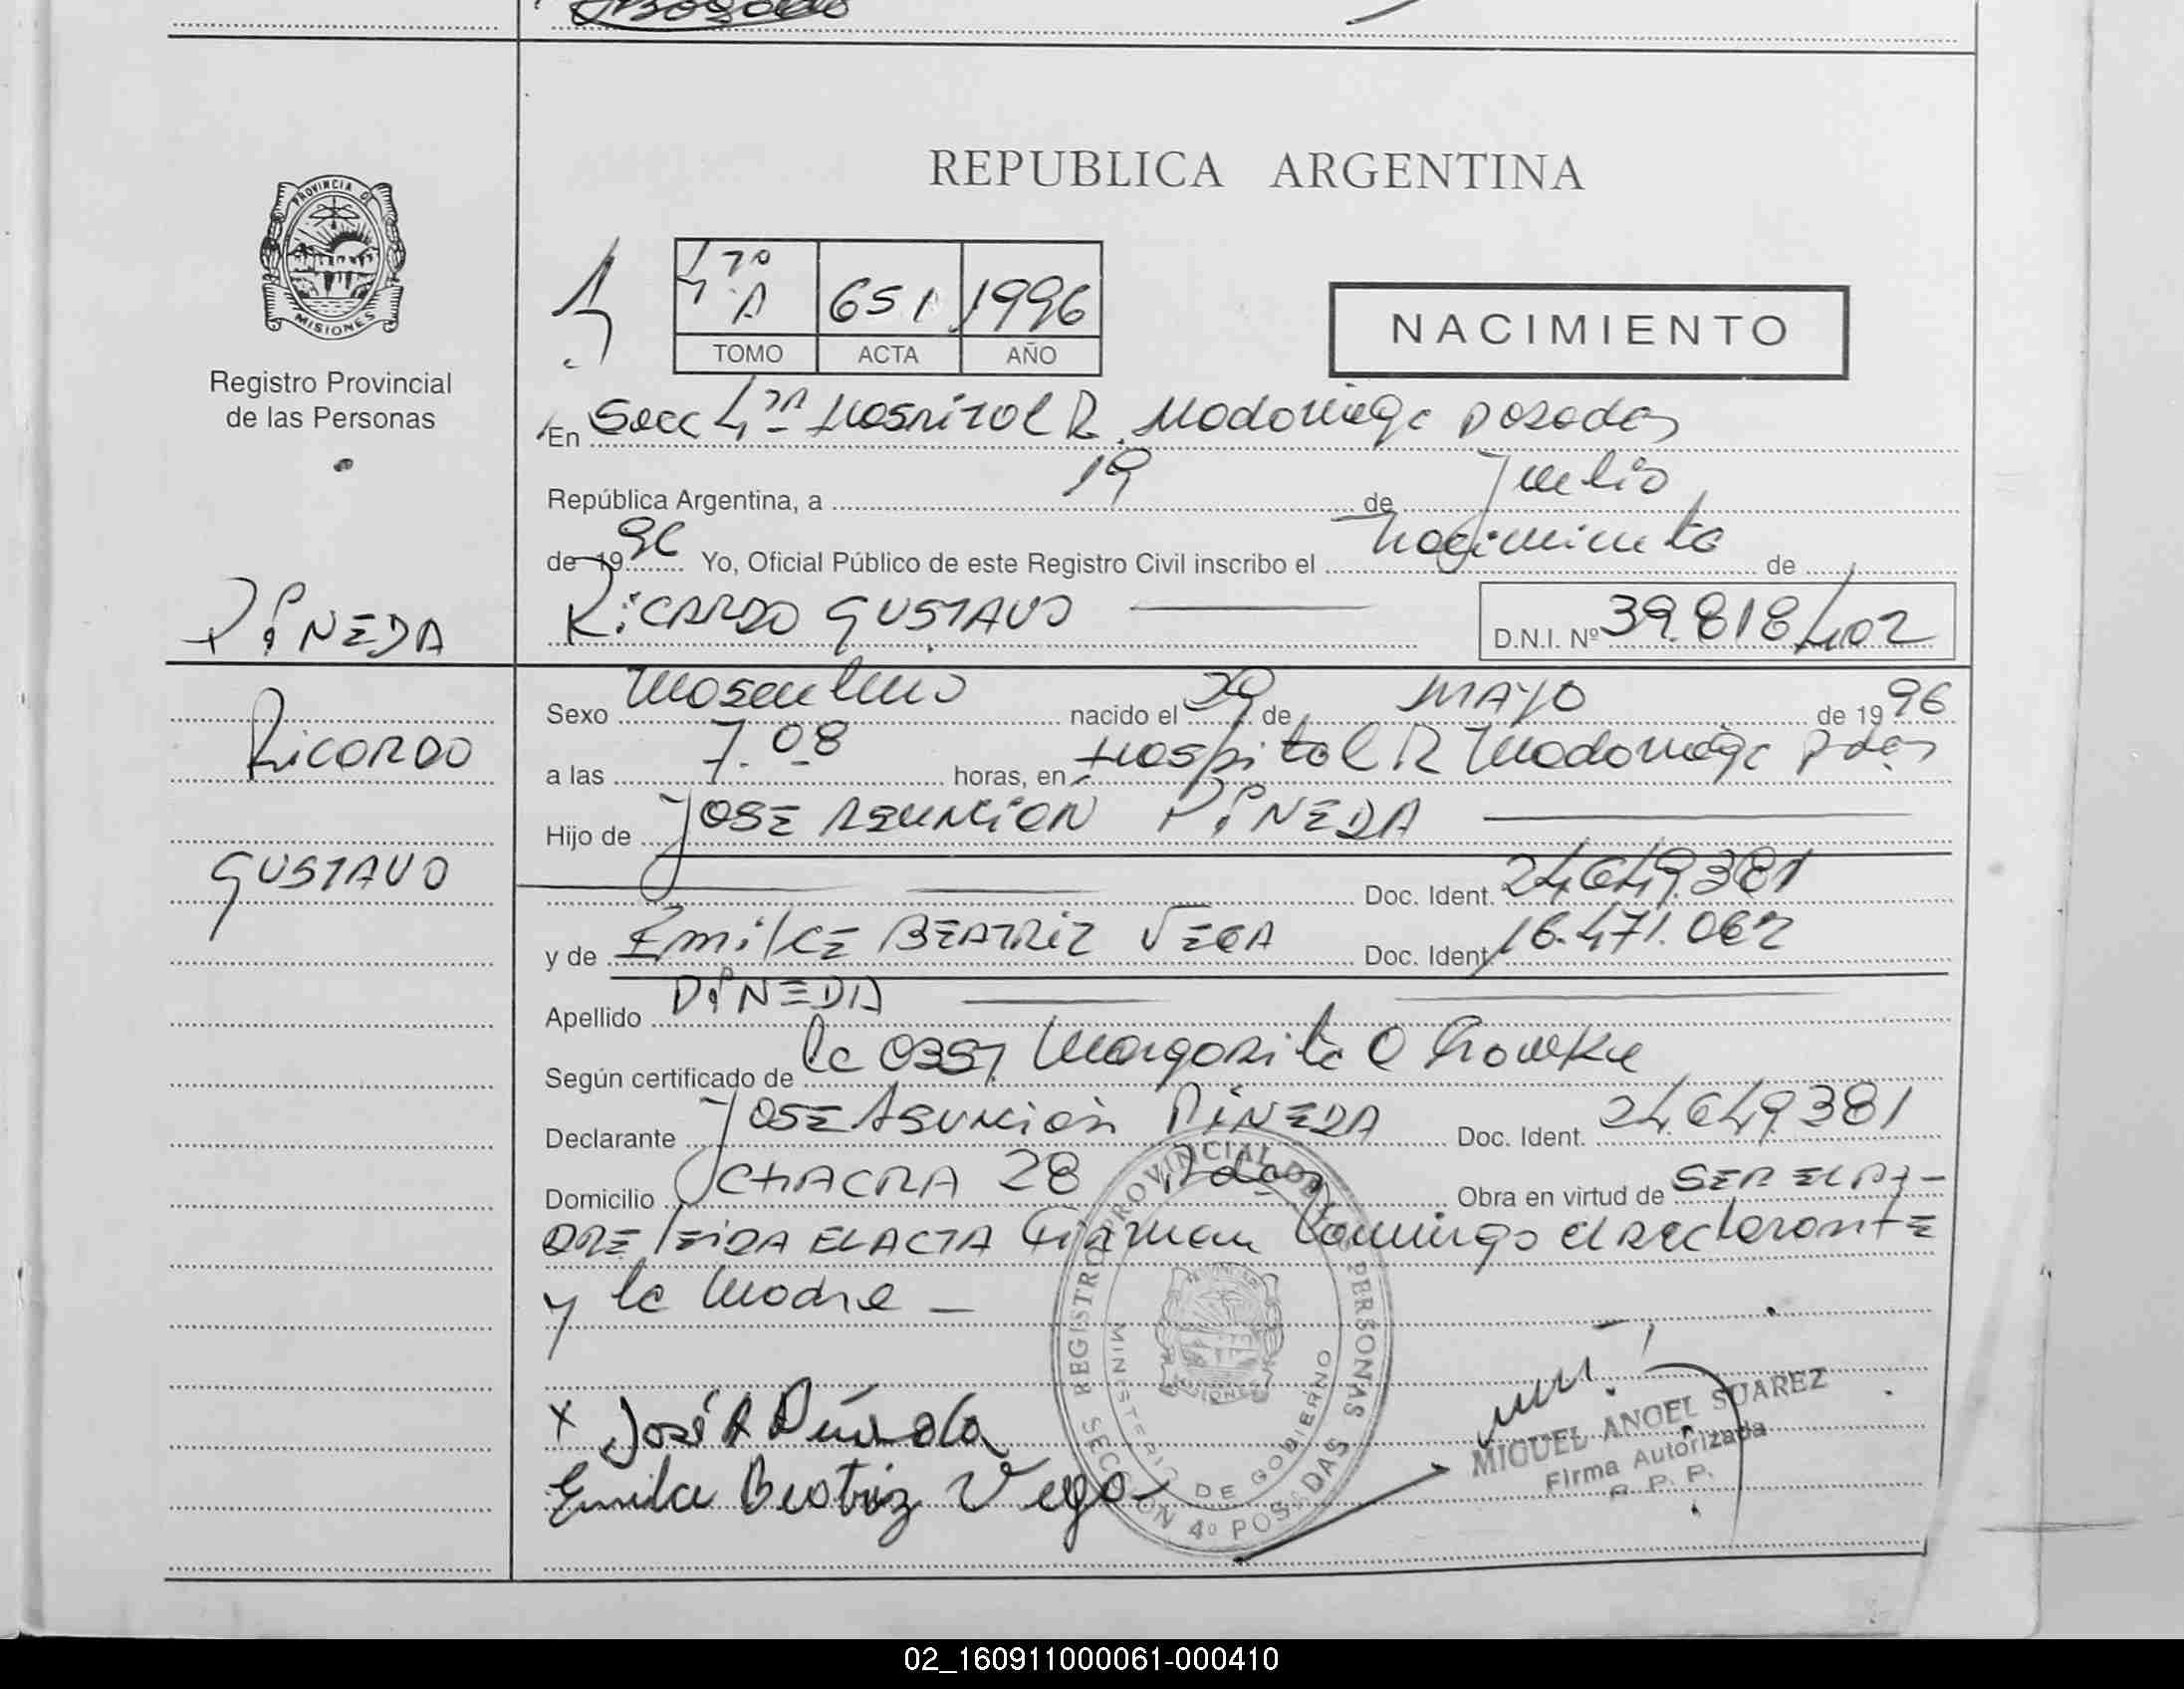 REPUBLICA ARGENTINA
PROVINCIA DE
MISIONES
Registro Provincial
de las Personas
4º A 651 1996
TOMO ACTA AÑO
NACIMIENTO
En Secc 4ta Hospital R. Madariaga Posadas
República Argentina, a 19 de Julio
de 1996 Yo, Oficial Público de este Registro Civil inscribo el nacimiento de
RICARDO GUSTAVO D.N.I. Nº 39.818.402
PINEDA
Ricardo
GUSTAVO
Sexo masculino nacido el 29 de MAYO de 1996
a las 7.08 horas, en Hospital R Madariaga Pdas
Hijo de JOSE ASUNCION PINEDA
Doc. Ident. 24.649.381
y de Emilce BEATRIZ VEGA Doc. Ident. 16.471.062
Apellido PINEDA
Según certificado de la obst Margarita O
Declarante JOSE ASUNCION PINEDA Doc. Ident. 24.649.381
Domicilio CHACRA 28 Pdas Obra en virtud de SER EL PA-
DRE leida EL ACTA Firman Conmigo el declarante
y la madre -
REGISTRO PROVINCIAL DE LAS PERSONAS
MINISTERIO DE GOBIERNO
SECCION 4º POSADAS
MISIONES
x José A Pineda
Emilce Beatriz Vega
MIGUEL ANGEL SUAREZ
Firma Autorizada
R. P. P.
02_160911000061-000410